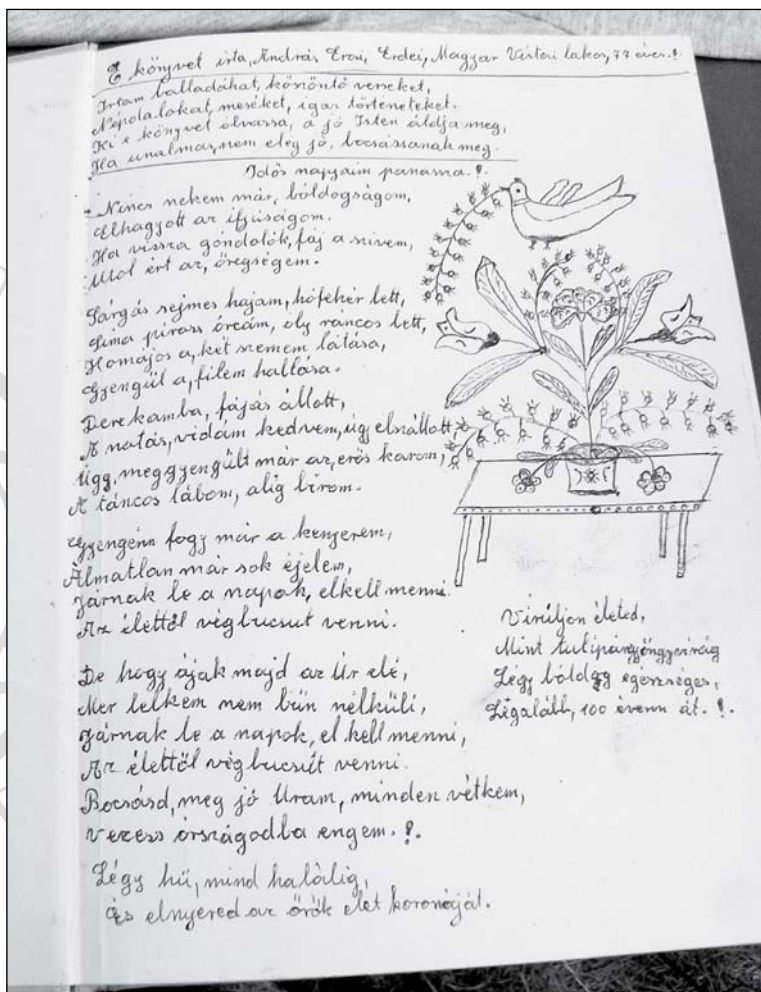 E könyvet irta, András Erzsi, Erdei, Magyar Vistai lakos, 77 éves.!.
Irtam balladákat, köszöntő verseket,
Népdalokat, meséket, igaz történeteket.
Ki e könyvet olvassa, a jó Isten áldja meg,
Ha unalmas, nem elég jó, bocsássanak meg.
Idős napjaim panasza.!.
Nincs nekem már, bóldogságom,
Elhagyott az ifjúságom.
Ha vissza góndolók, fáj a szivem,
Utol ért az, öregségem.
Sárgás sejmes hajam, hófehér lett,
Sima piross órcám, óly ráncos lett,
Homájos a, két szemem látása,
Gyengül a, fülem hallása.
Derekamba, fájás állott,
A natás, vidám kedvem, úgy elszállott,
Úgy, meggyengült már az, erős karom,
A táncos lábom, alig birom.
Gyengénn fogy már a kenyerem,
Álmatlan már sok éjelem,
Járnak le a napok, elkell menni.
Az élettől vég bucsut venni.
De hogy ájak majd az Úr elé,
Mer lelkem nem bün nélküli,
Járnak le a napok, el kell menni,
Az élettől vég bucsút venni.
Bocsásd, meg jó Uram, minden vétkem,
Vezess országodba engem.!.
Légy hü, mind halálig,
És elnyered az örök élet koronáját.
Viruljon életed,
Mint tulipán, gyöngyvirág
Légy bóldog egészséges,
Légalább, 100 évenn át.!.